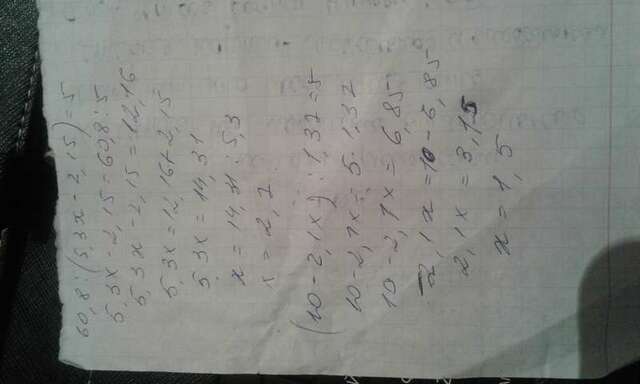 60,8:(5,3x-2,15)=5
5,3x-2,15=60,8:5
5,3x-2,15=12,16
5,3x=12,16+2,15
5,3x=14,31
x=14,31:5,3
x=2,7
(10-2,1x):1,37=5
10-2,1x=5·1,37
10-2,1x=6,85
2,1x=10-6,85
2,1x=3,15
x=1,5